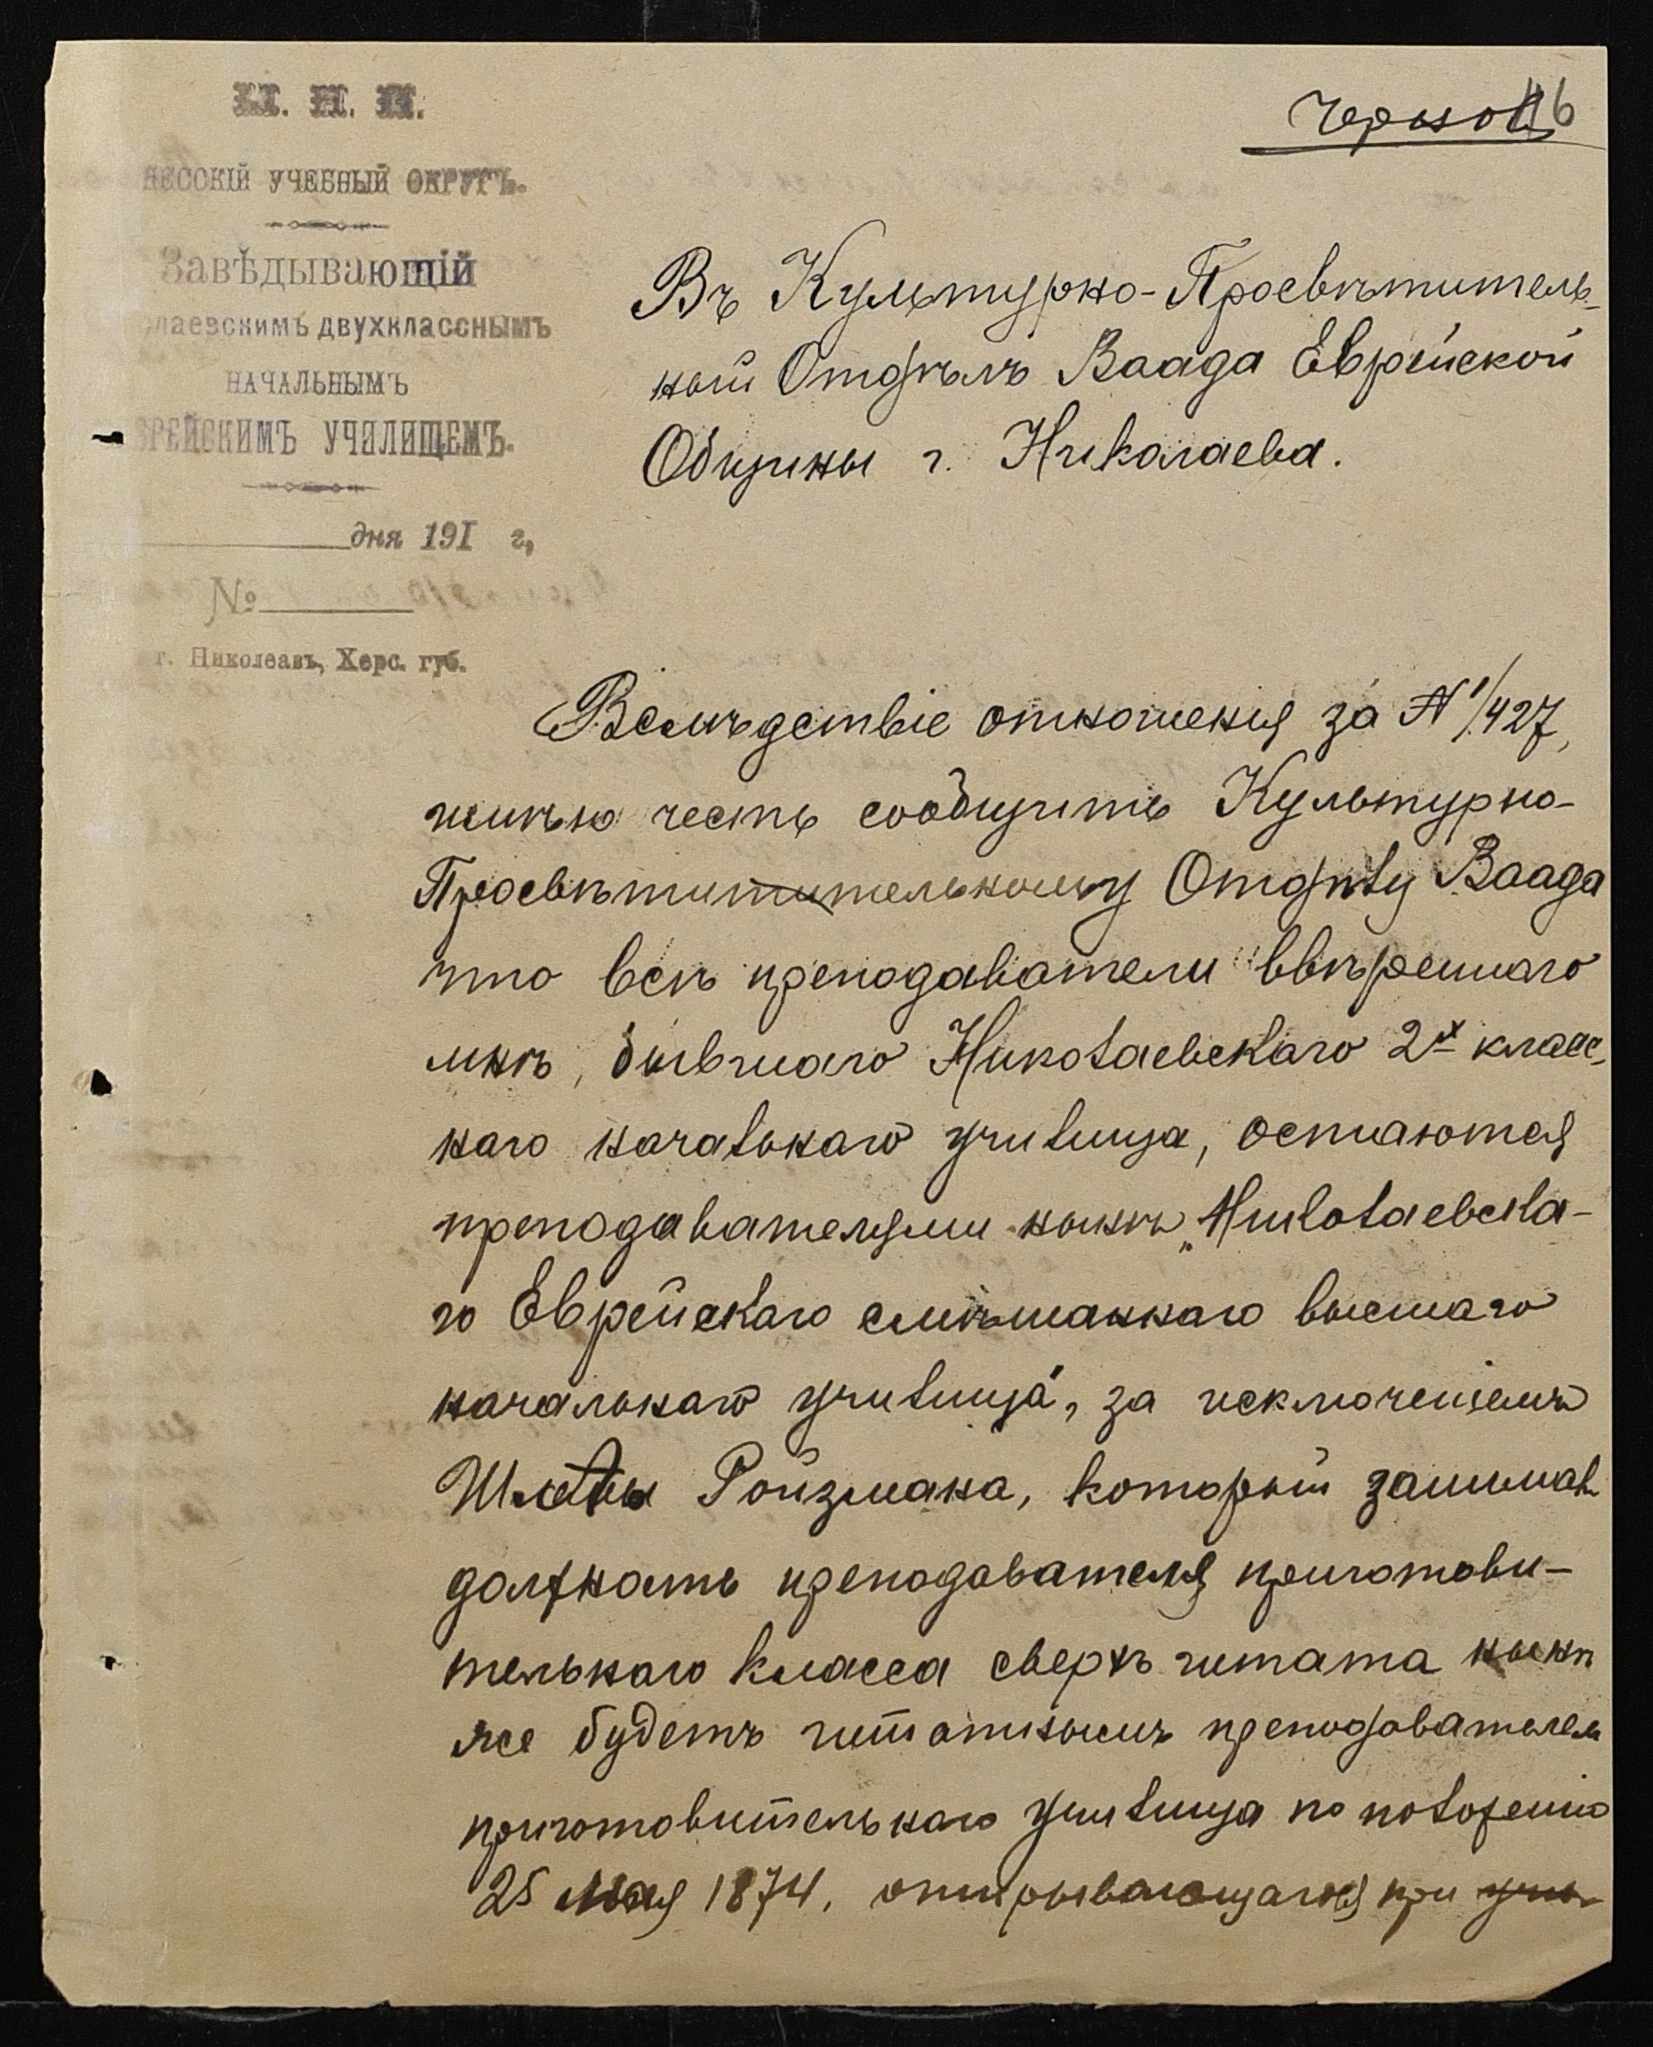 М. Н. П.
ДЕССКІЙ УЧЕБНЫЙ ОКРУГЪ.
Завѣдывающій
лаевскимъ двухкласснымъ
НАЧАЛЬНЫМЪ
ВРЕЙСКИМЪ УЧИЛИЩЕМЪ.
дня 191 г,
№
г. Николеавъ, Херс. губ.
Чернов 46
Въ Культурно-Просвѣтитель-
ный Отдѣлъ Ваада Еврейской
Общины г. Николаева.
Вслѣдствіе отношенія за № 1/427,
имѣю честь сообщить Культурно-
Просвѣтитительному Отдѣлу Ваада
что всѣ преподаватели ввѣреннаго
мнѣ, бывшаго Николаевскаго 2х класс-
наго начальнаго училища, остаются
преподавателями нынѣ „Николаевска-
го Еврейскаго смѣшаннаго высшаго
начальнаго училища", за исключеніемъ
Ройзмана, который занимав
должность преподавателя приготови-
тельнаго класса сверхъ штата нынѣ
же будетъ штатнымъ преподавателем
приготовительнаго училища по положенію
25 Мая 1874, открывающагося при учи-